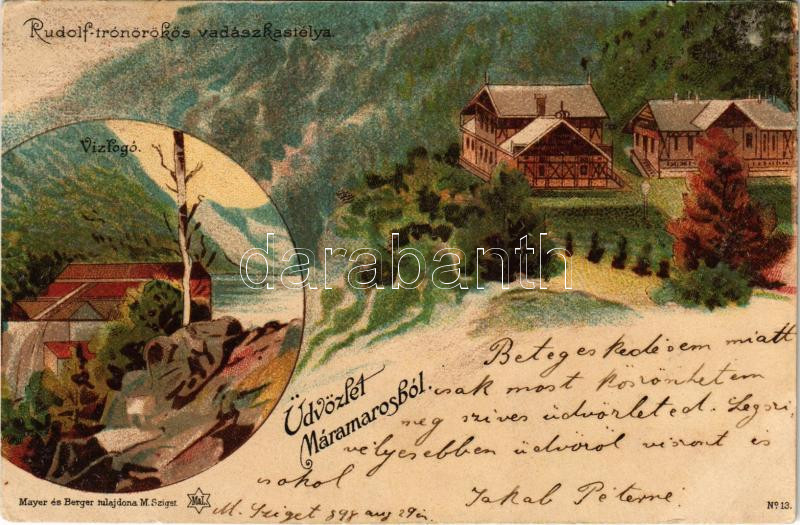 Rudolf-trónörökös vadászkastélya.
Vizfogó.
darabanth
Üdvözlet
Máramarosból.
Betegeskedésem miatt
csak most köszönhetem
meg szives üdvözleted. Legszi-
vélyesebben üdvözöl viszont és
csókol
Jakab Péterné
M. Sziget 898 aug 29én
Mayer és Berger tulajdona M. Sziget.
M&L.
No 13.